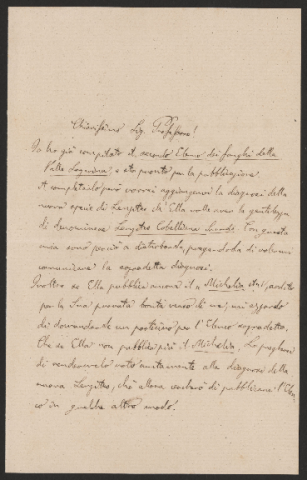 Chiarissimo Sig. Professore!
Io ho già compilato il secondo Elenco dei funghi della
Valle Lagarina, e sto pronto per la pubblicazione.
A completarlo però vorrei aggiungervi la diagnosi della
nuova specie di che Ella volle avere la gentilezza
di denominare Cobelliana Sacardo. Con questa
mia sono perciò a disturbarla, pregandola di volermi
comunicare la sopradetta diagnosi.
Inoltre se Ella pubblica ancora il n Michelia ardito
per la Sua provata bontà verso di me, mi azzardo
di domandarle un posticino per l'Elenco sopradetto.
Che se Ella non pubblica più il Michelia, La pregherei
di rendermelo noto unitamente alla diagnosi della
nuova, chè allora cercherò di pubblicare l'Elen-
co in qualche altro modo.